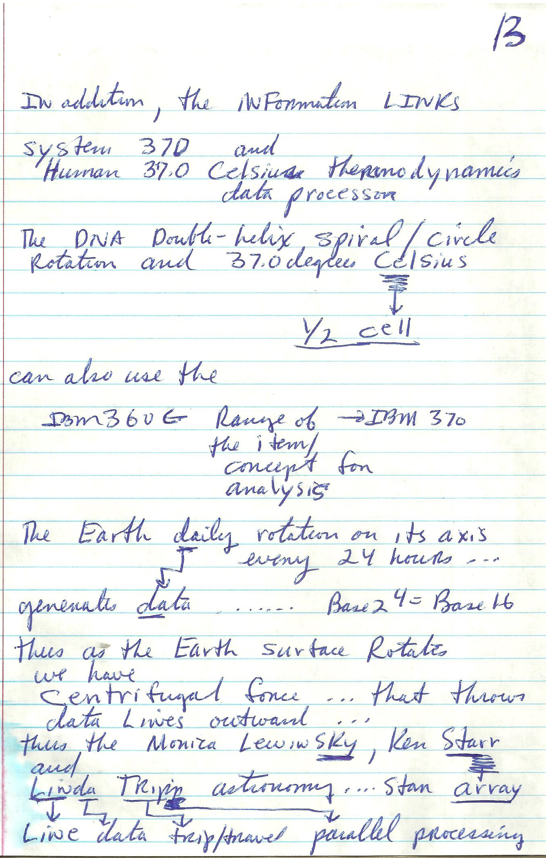 13
In addition, the inFormation LINKs
system 370 and
Human 37.0 Celsius thermodynamics
data processor
The DNA Double-helix spiral/circle
Rotation and 37.0 degrees Celsius
1/2 cell
can also use the
IBM 360 ← Range of → IBM 370
the item/
concept for
analysis
The Earth daily rotation on its axis
every 24 hours ...
generates data ....... Base 2⁴ = Base 16
thus as the Earth surface Rotates
we have
Centrifugal force ... that throws
data Lines outward ...
thus the Monica LewinSKy, Ken Starr
and
Linda TRipp astronomy .... star array
Line data trip/travel parallel processing